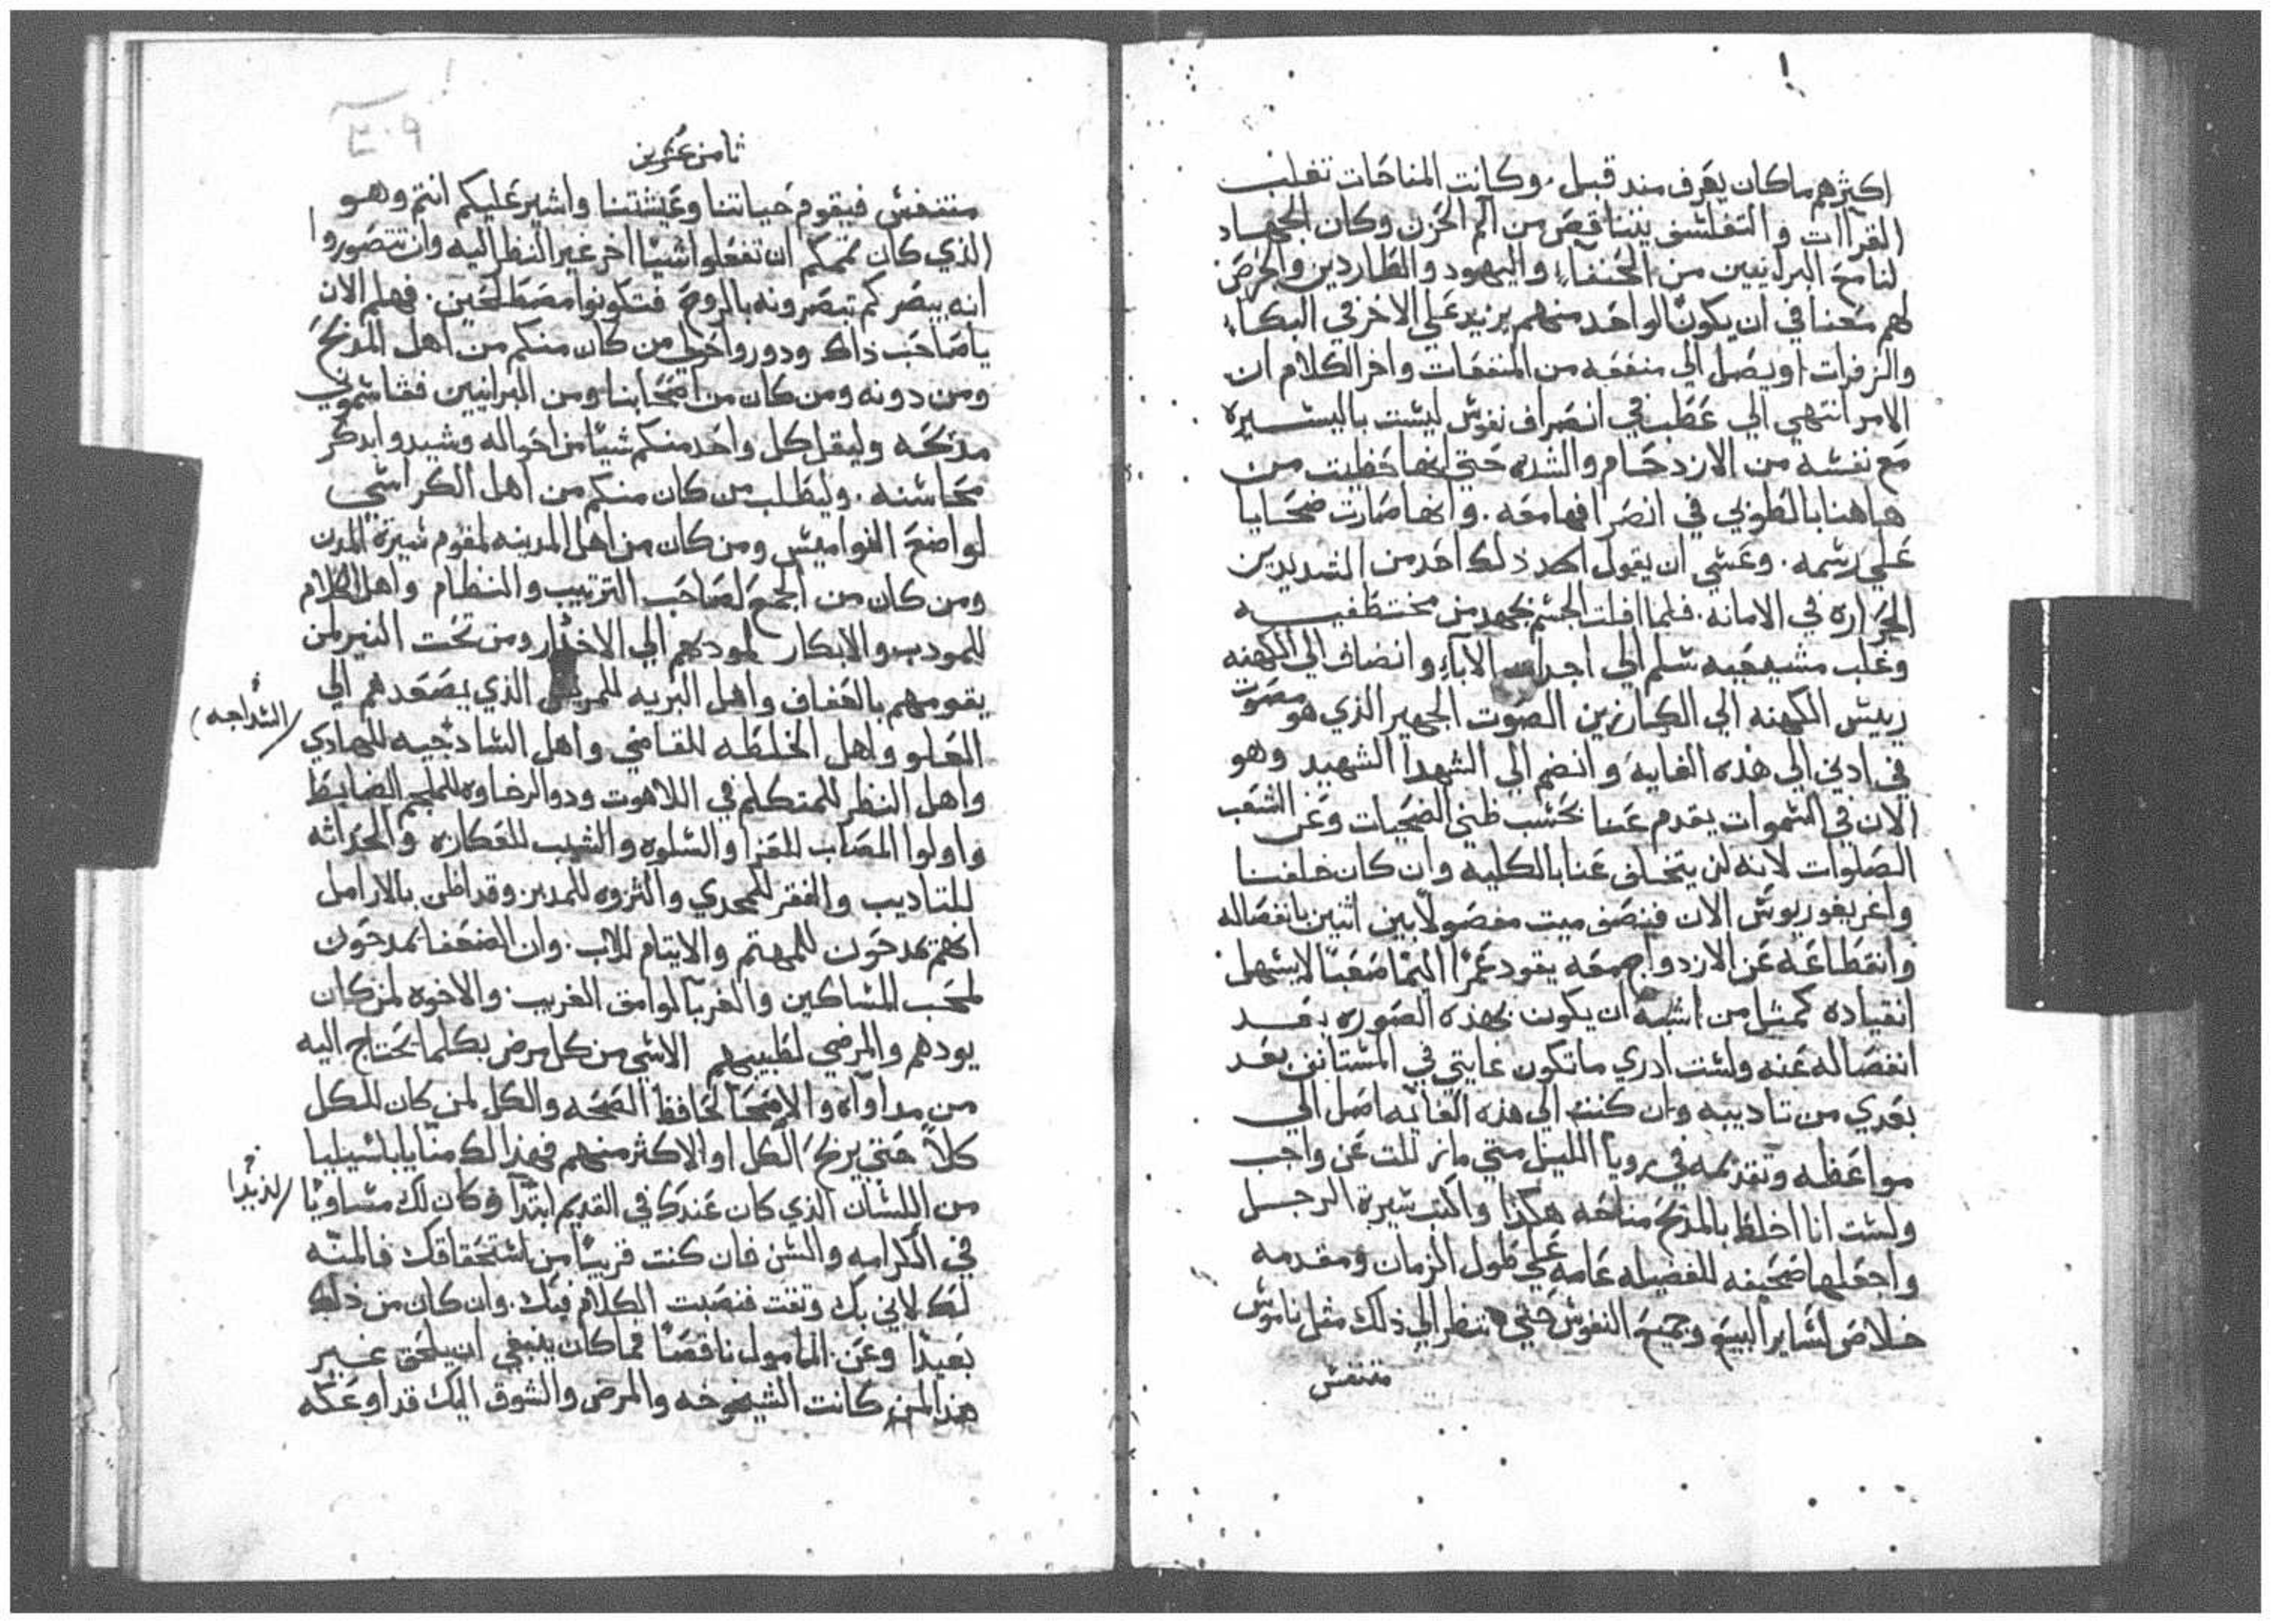 اكثرهم ماكان يعرف منذ قبل. وكانت المناحات تغلب
القرآات والتفلسف يتناقص من الم الحزن وكان الجهاد
لنا مع البرانيين من الحنفآء واليهود والطاردين والحرص
لهم معنا في ان يكون الواحد منهم يزيد علي الاخر في البكآء
والزفرات او يصل الي منفعه من المنفعات واخر الكلام ان
الامر انتهي الي عطب في انصراف نفوس ليست باليسيره
مع نفسه من الازدحام والشده حتي انها حظيت من
هاهنا بالطوبي في انصرافها معه. وانها صارت ضحايا
علي رسمه. وعسي ان يقول احد ذلك احد من الشديدين
الحراره في الامانه. فلما افلت الجسم بجهد من مختطفيه
وغلب مشيعيه سلم الي اجداث الآباء وانضاف الي الكهنه
رييس الكهنه الي الكارزين الصوت الجهير الذي هو مصوت
في ادني الي هذه الغايه وانضم الي الشهدا الشهيد وهو
الان في السموات يقدم عنا بحسب ظني الضحيات وعن الشعب
الصلوات لانه لن يتخلف عنا بالكليه وان كان خلفنا
واغريغوريوس الان فنصف ميت مفصولا بين اثنين بانفصاله
وانقطاعه عن الازدواج معه يقود عمرًا اليمًا متعبًا لا يسهل
انقياده كمثل من اشبه ان يكون بهذه الصوره بعد
انفصاله عنه ولست ادري ماتكون غايتي في المستانف بعد
بعدي من تاديبه وان كنت الي هذه الغايه اصل الي
مواعظه وتقذيمه في رويا الليل متي مازللت عن واجب
ولست انا اخلط بالمدح مناحه هكذا واكتب سيرة الرجل
واجعلها صحيفه للفضيله عامه علي طول الزمان ومقدمه
خلاص لساير البيع وجميع النفوس حتي ننظر الي ذلك مثل ناموس
متنفس
ثامن عشرين
متنفس فيقوم حياتنا وعيشتنا واشير عليكم انتم وهو
الذي كان تممكم ان تفعلوا شيًا اخر غير النظر اليه وان تتصوروا
انه يبصركم تبصرونه بالروح فتكونوا مصطلحين. فهلم الان
ياصاحب ذاك ودوروا حولي من كان منكم من اهل المدبح
ومن دونه ومن كان من اصحابنا ومن البرانيين فقاسموني
مدحه وليقل كل واحد منكم شيًا من احواله وشيدوا بدكر
محاسنه. وليطلب من كان منكم من اهل الكراسي
لواضع النواميس ومن كان من اهل المدينه لمقوم سيرة المدن
ومن كان من الجمع لصاحب الترتيب والنظام واهل الكلام
للمودب والابكار لموديهم الي الاختار ومن تحت النير لمن
يقومهم بالعفاف واهل البريه للمريش الذي يصعدهم الي
العلو واهل الخلطه للقاضي واهل الساذجيه للهادي
(السداجه)
واهل النظر للمتكلم في اللاهوت ودو الرخاوه للملجم الضابط
واولوا المصاب للعزا والسلوه والشيب للعكازه والحداثه
للتاديب والفقر للمجدي والثروه للمدبر وقد اظن بالارامل
انهم يمدحون للمهتم والايتام للاب. وان الضعفا يمدحون
لمحب المساكين والغربا لوامق الغريب. والاخوه لمن كان
يودهم والمرضي لطبيبهم الاشي من كل مرض بكلما يحتاج اليه
من مداوآه والاصحآ لحافظ الصحه والكل لمن كان للكل
كلاً حتي يربح الكل او الاكثر منهم فهذا لك منّا ياباسيليا
من اللسان الذي كان عندك في القديم ابتدًا وكان لك مساويًا
لذيذا
في الكرامه والسن فان كنت قريبًا من استحقاقك فالمنّه
لك لاني بك وثقت فنصبت الكلام فيك. وان كان من ذلك
بعيدًا وعن المامول ناقصًا فما كان ينبغي ان يلحق غير
هذا لمن كانت الشيخوخه والمرض والشوق اليك قد اوعكه